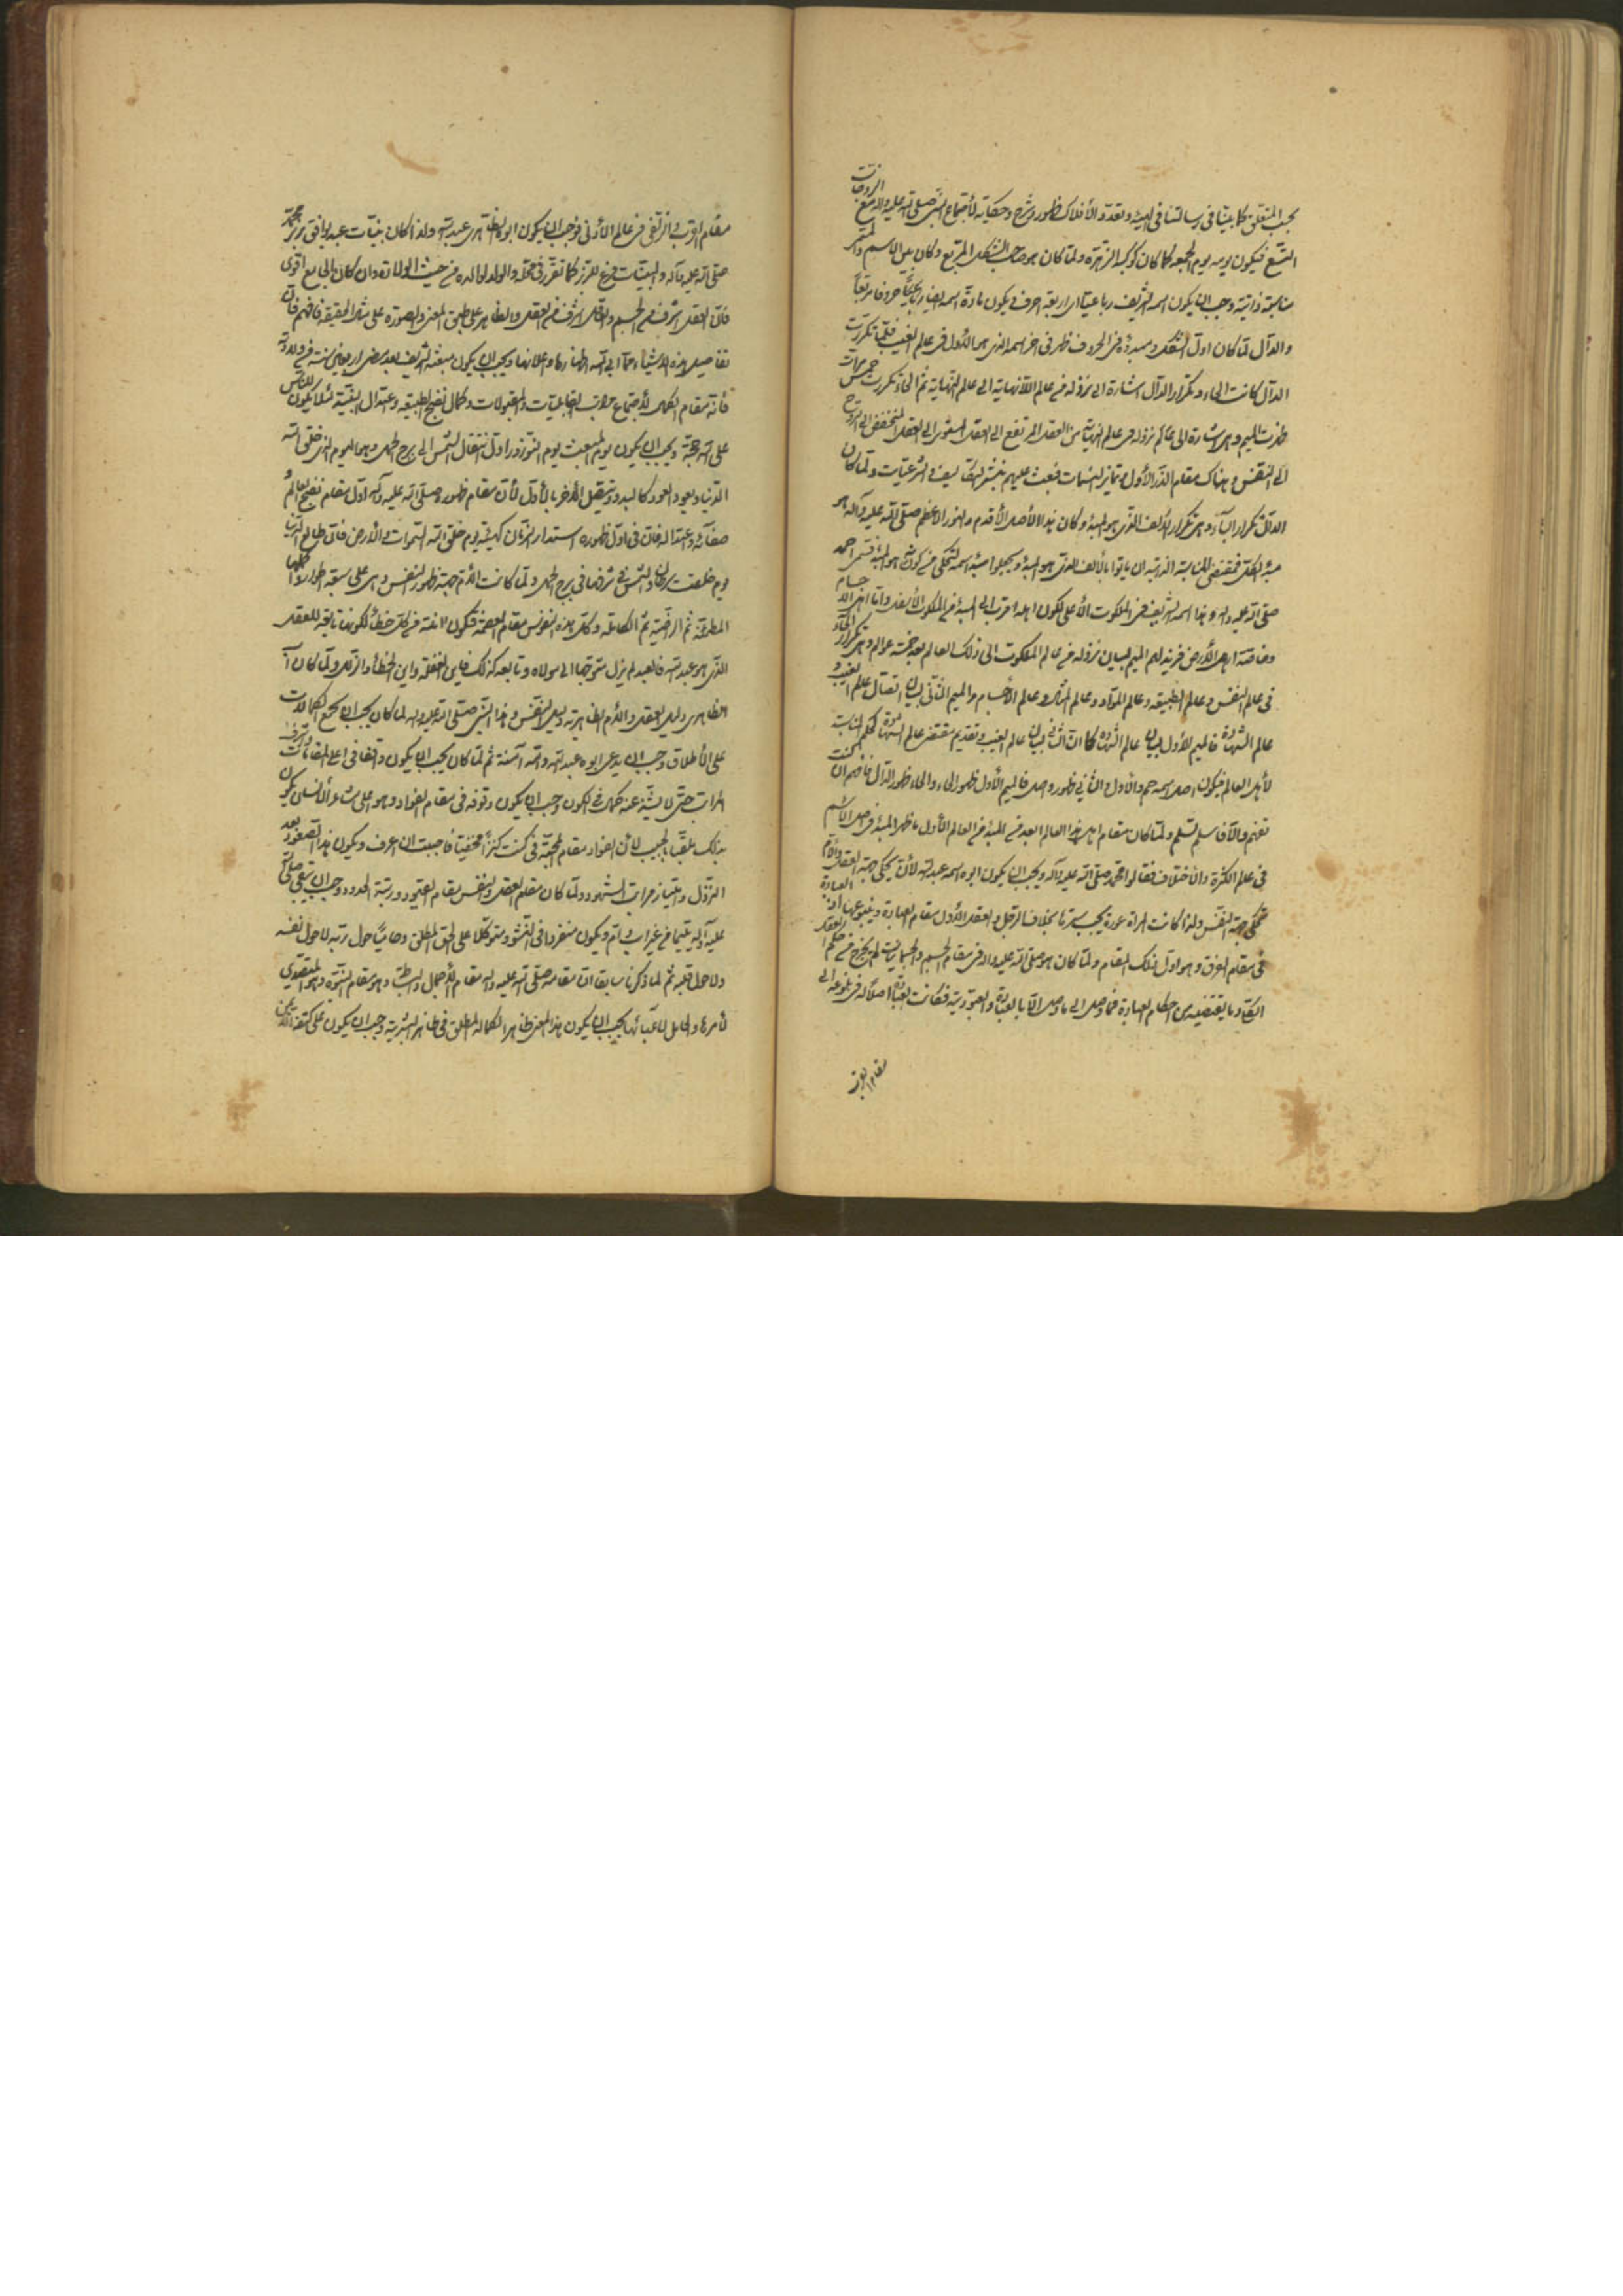 يجب المتعلق كما بينا في رسالتنا في الهيئة وتعدد الأفلاك ظهور وشرح وحكاية لأجتماع النبي صلى الله عليه وآله مع
التسع فيكون يومه يوم الجمعة كما كان كوكبه الزهرة ولما كان هو صاحب الشكل المربع وكان بين الاسم والمسمى
مناسبة ذاتية وجب ان يكون اسمه الشريف رباعيا اى اربعة احرف ويكون مادة اسمه ايضا
والدال لما كان اول الشكل ومبدؤه من الحروف ظهر في اخر اسمه الذى هو الأول في عالم الغيب فلما تكررت
الدال كانت الحاء وتكرار الدال اشارة الى نزوله من عالم اللانهاية الى عالم النهاية ثم الحاء تكررت خمس مرات
ظهرت الميم وهى اشارة الى نزوله فى عالم من العقل المرتفع الى العقل المستوى الى العقل المنخفض الى الروح
الى النفس وهناك مقام الذر الأول فبعث عليهم التكاليف والشرعيات ولما كان
الدال تكرار الباء وهى تكرار الألف الذى هو المبدء وكان هذا الأصل الأقدم والنور الأعظم صلى الله عليه وآله هو
مبدء الكل فمقتضى المناسبة الذاتية ان ياتوا بالألف الذى هو المبدء ويجعلوا مبدء اسمه ليحكى من كونه هو المبدء فسمى احمد
صلى الله عليه وآله وهذا اسمه الشريف فى الملكوت الأعلى لكون اهله اقرب الى المبدء من الملكوت الأسفل واما اهل الأجسام
وخاصة اهل الأرض فزيد لهم الميم لبيان نزوله من عالم الملكوت الى ذلك العالم بعد خمسة عوالم وهى تكرار الحاء
فى عالم النفس وعالم الطبيعة وعالم المواد وعالم المثال وعالم الأجسام والميم الثانى لبيان اتصال عالم الغيب و
عالم الشهادة فالميم الأول لبيان عالم الشهادة كما ان الثانى لبيان عالم الغيب وتقديم مقتضى عالم الشهادة لحكم المناسبة
لأهل العالم فيكون اصل اسمه حم والأول والثانى ظهور واصل فالميم الأول ظهور الحاء والحاء ظهور الدال فافهم ان كنت
تفهم والا فاسلم تسلم ولما كان مقام اهل هذا العالم ابعد من المبدء من العالم الأول ما ظهر المبدء فى اصل الاسم
فى عالم الكثرة والاختلاف فقالوا محمد صلى الله عليه وآله ويجب ان يكون ابوه اسمه عبد الله لان يحكى جهة العقل والام
تحكى جهة النفس ولذا كانت المراة عورة يجب سترها بخلاف الرجل والعقل الأول مقام العبادة
فى مقام الفرق وهو اول ذلك المقام ولما كان هو صلى الله عليه وآله فى مقام الجسم والجسمانيات لم يخرج من حكم العقل
وما يقتضيه من احكام العبادة فما وصل الى ما وصل الا بالعبادة والعبودية فكانت العبادة اصلا له فى بلوغه الى
مقام القرب
مقام القرب والترقى من عالم الأدنى فوجب ان يكون ابوه الظاهرى عبد الله ولذا كان بينات عبد يوافق زبر محمد
صلى الله عليه وآله والبينات فرع للزبر كما تقرر فى محله والولد لوالده من حيث الولادة وان كان الجامع اقوى
فان العقل اشرف من الجسم والظاهر على طبق المعنى والصورة على مثال الحقيقة فافهم فان
تفاصيل هذه الأشياء مما ابى الله اظهارها واعلانها ويجب ان يكون مبعثه الشريف بعد مضى اربعين سنة من ولادته
فانه مقام الكمال لاجتماع مراتب القابليات والمقبولات وكمال نضج الطبيعة واعتدال البنية لئلا يكون للناس
على الله حجة ويجب ان يكون يوم المبعث يوم النوروز اول انتقال الشمس الى برج الحمل وهو اليوم الذى خلق الله
الدنيا ويعود العود كالبدو ويتصل الآخر بالأول لأن مقام ظهوره صلى الله عليه وآله اول مقام نضج العالم
صفائه واعتداله فان فى اول ظهوره استدار الزمان كهيئة يوم خلق الله السموات والأرض فان طالع الدنيا
يوم خلقت سرطان والشمس فى شرفها فى برج الحمل ولما كانت الأم جهة ظهور النفس وهى على سبعة اطوار
المطمئنة ثم الراضية ثم الكاملة وكل هذه النفوس مقام العصمة فتكون امنة من كل خطأ لكونها تابعة للعقل
الذى هو عبد الله فالعبد لم يزل متوجها الى مولاه وتابعه كذلك فاين الغفلة واين الخطأ والزلل ولما كان الأب
الظاهرى دليل العقل والأم الظاهرية دليل النفس وهذا النبى صلى الله عليه وآله لما كان يجب ان يجمع الكمالات
على الأطلاق وجب ان يدعى ابوه عبد الله وامه آمنة ثم لما كان يجب ان يكون واقفا فى اعلى المقامات واشرف
المراتب حتى لا يشذ عنه كمال فى الكون وجب ان يكون وقوفه فى مقام الفؤاد وهو اعلى مشاعر الأنسان يكون
بذلك ملقبا بالحبيب لأن الفؤاد مقام المحبة فى كنت كنزا مخفيا فاحببت ان اعرف ويكون هذا الصعود بعد
النزول وامتياز مراتب الشهود ولما كان مقام العقل والنفس مقام القيود ورتبة الحدود وجب ان يبقى صلى الله
عليه وآله يتيما من غير اب وام ويكون منفردا فى النشو ومتوكلا على الحق المطلق وحائما حول ربه لا حول نفسه
ولا حول عقله ثم لما ذكرنا سابقا ان مقامه صلى الله عليه وآله مقام الأجمال والبساطة وهو مقام النبوة وهو المتصدى
لأمرها والحامل لأعبائها يجب ان يكون هذا المعنى ظاهرا لكماله المطلق فى ظاهر البشرية وجب ان يكون على كتفه الأيمن